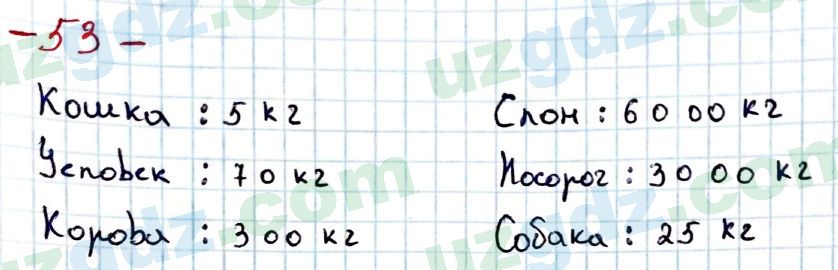 - 53 -
Кошка : 5 кг
Человек : 70 кг
Корова : 300 кг
Слон : 6000 кг
Носорог : 3000 кг
Собака : 25 кг
uzgdz.com